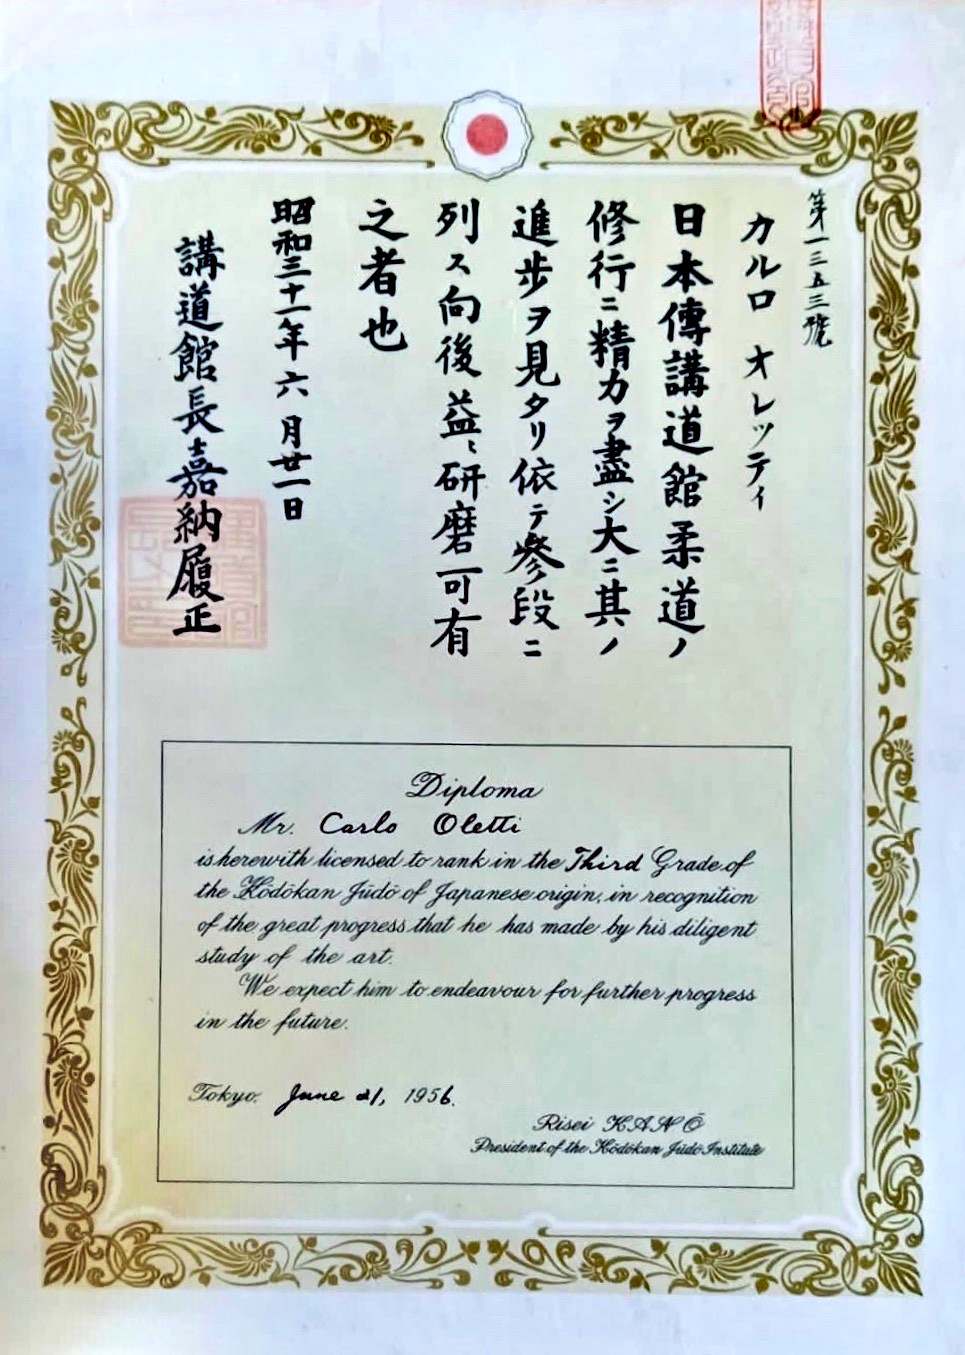 第一三五三號
カルロ オレッティ
日本傳講道館柔道ノ
修行ニ精力ヲ盡シ大ニ其ノ
進歩ヲ見タリ依テ參段ニ
列ス向後益〻研磨可有
之者也
昭和三十一年六月廿一日
講道館長嘉納履正
Diploma
Mr. Carlo Oletti
is herewith licensed to rank in the Third Grade of
the Kōdōkan Jūdō of Japanese origin, in recognition
of the great progress that he has made by his diligent
study of the art.
We expect him to endeavour for further progress
in the future.
Tokyo. June 21, 1956.
Risei KANŌ
President of the Kōdōkan Jūdō Institute